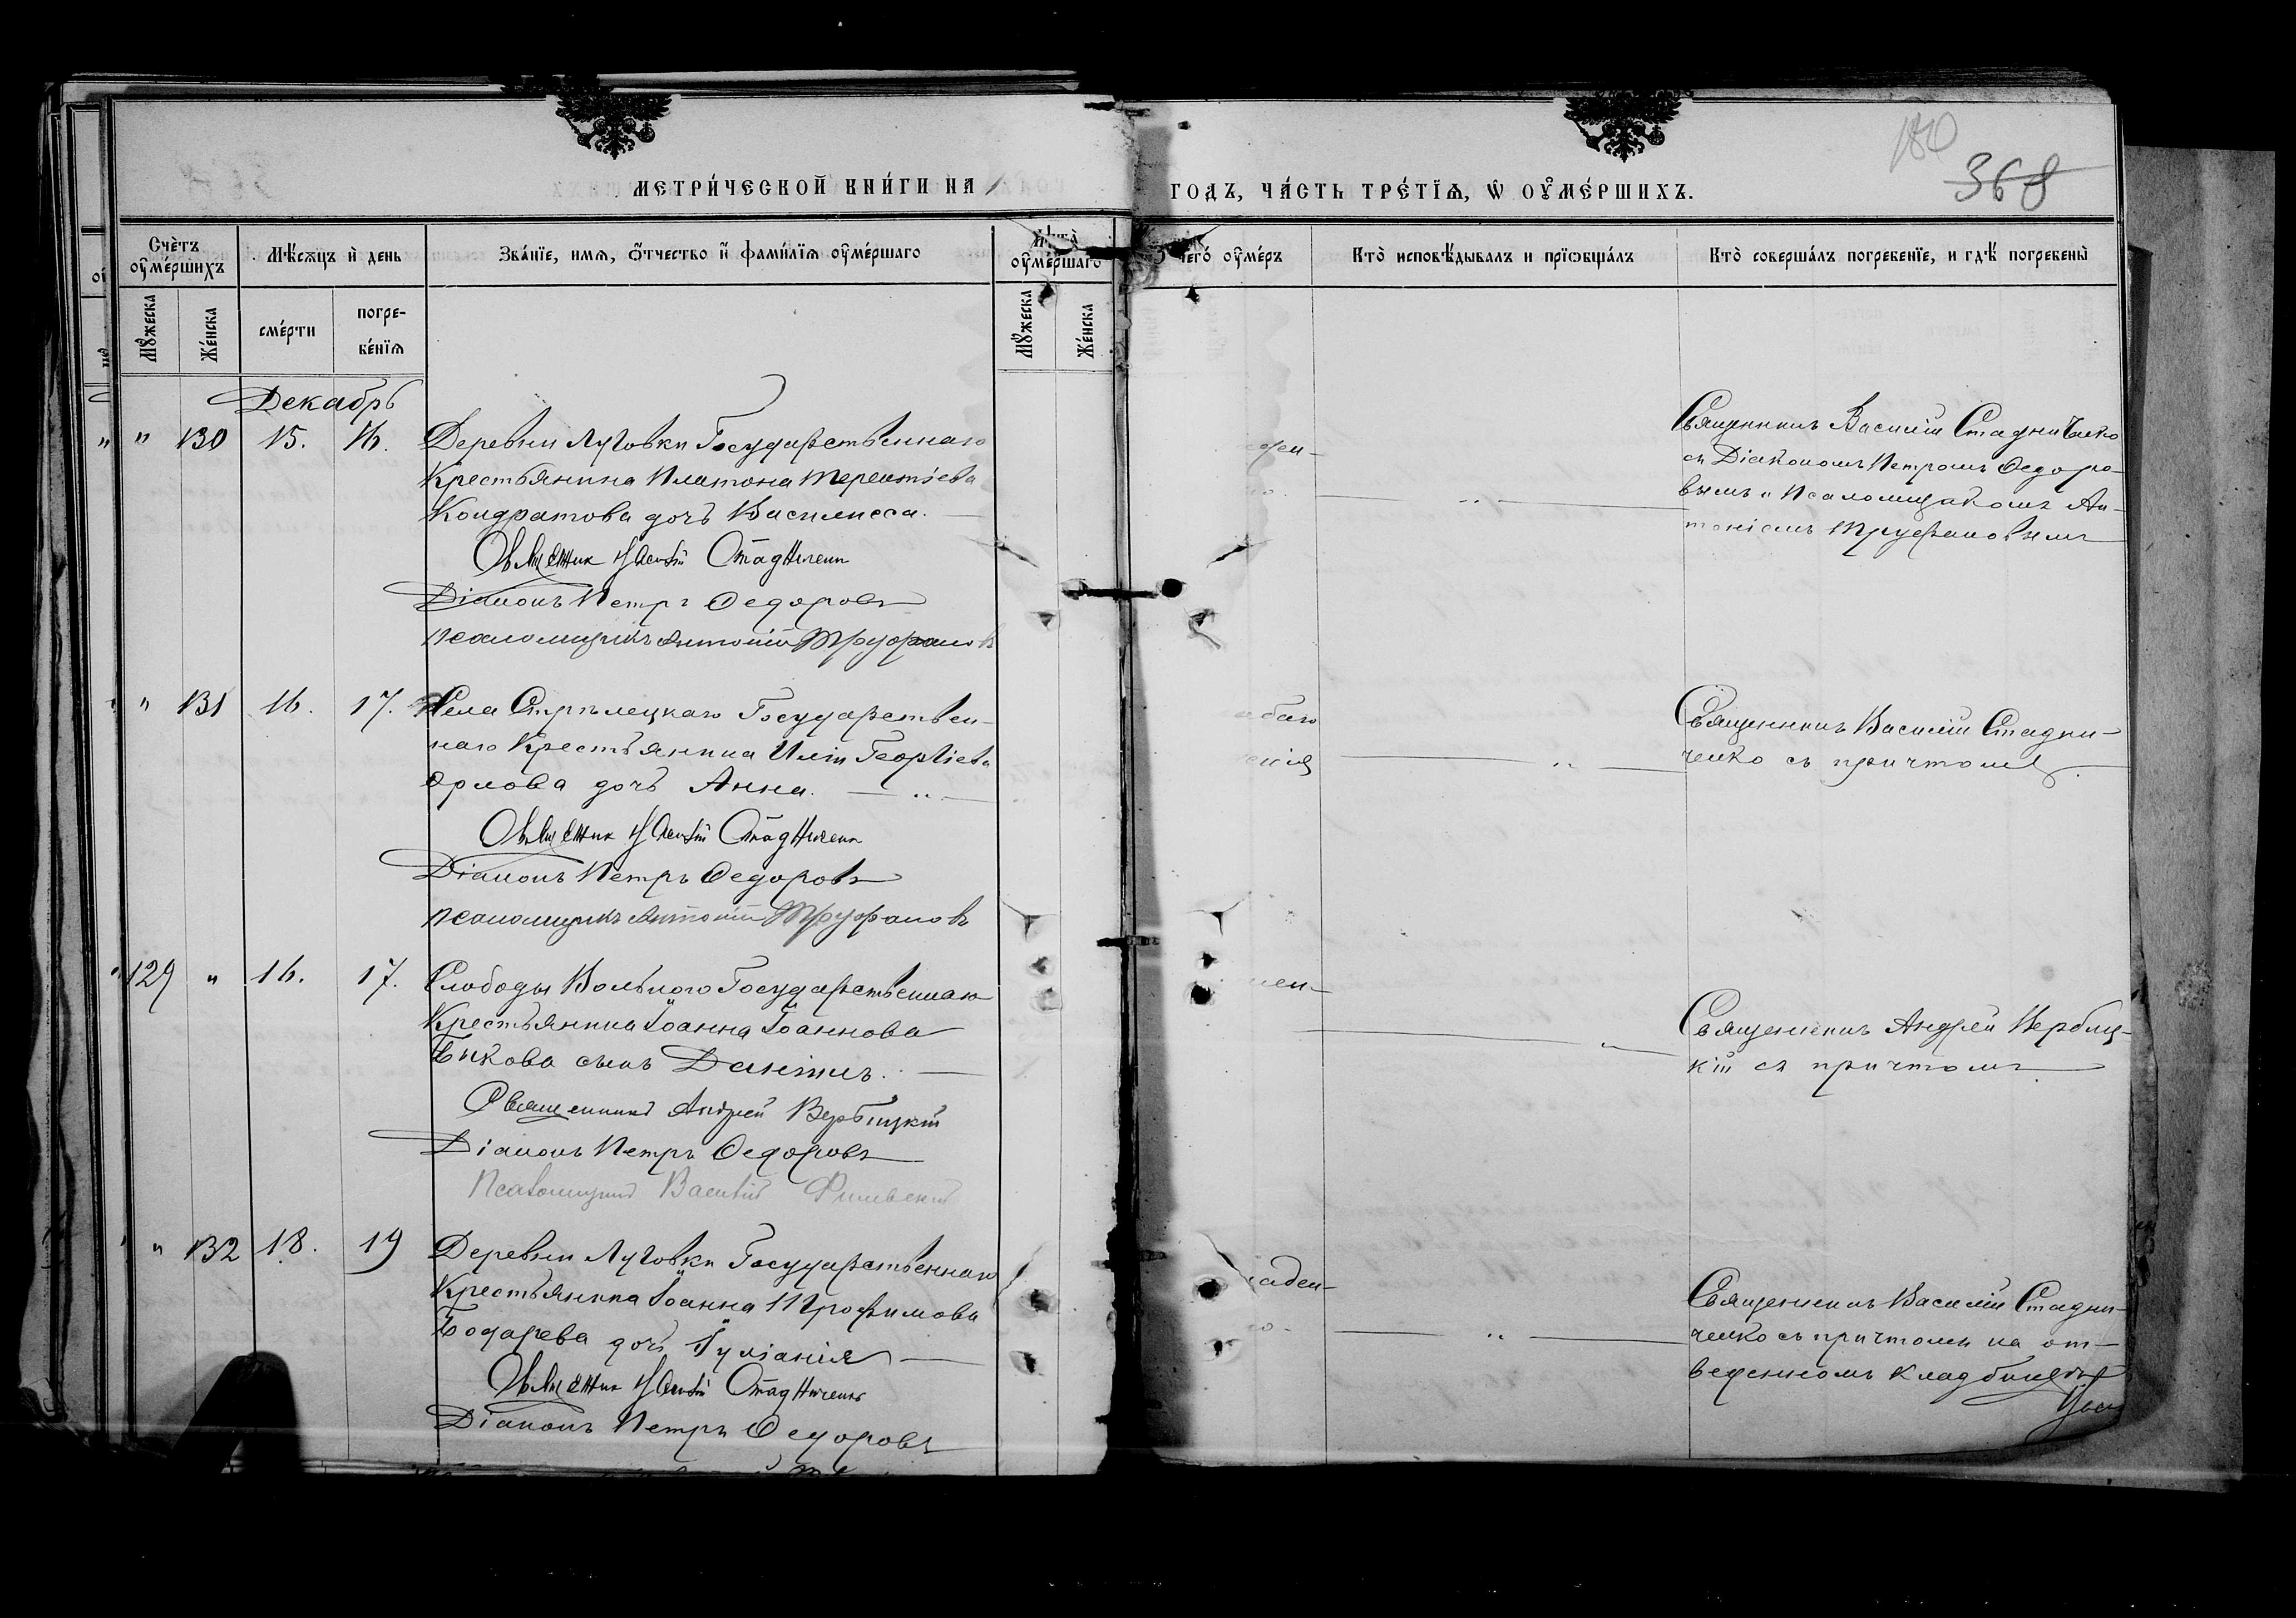 180
368
МЕТРИ́ЧЕСКОЙ КНИ́ГИ НА 1
ГОДЪ, ЧА́СТЬ ТРЕ́ТЇѦ, Ѡ ОУМЕ́РШИХЪ.
Счетъ оумершихъ
Мѣсяцъ и день
Званїе, имѧ, отчество и фамилїѧ оумершаго
Лѣта оумершаго
чего оумеръ
Кто исповѣдывалъ и прїобщалъ
Кто совершалъ погребенїе, и гдѣ погребены
Мужеска
Женска
смерти
погребенїѧ
Мужеска
Женска
Декабрь
" 130 15. 16. Деревни Луговки Государственнаго
Крестьянина Платона Терентіева
Кондратова дочь Василисса.
Священник Василій Стадниченко
Діаконъ Петръ Федоровъ
псаломщикъ Антоній Труфановъ
Священникъ Василій Стадниченко
съ Діакономъ Петромъ Федоро-
вымъ и Псаломщикомъ Ан-
тоніемъ Труфановымъ
" 131 16. 17. Села Стрѣлецкаго Государствен-
наго Крестьянина Иліи Георгіева
Орлова дочь Анна.
Священник Василій Стадниченко
Діаконъ Петръ Федоровъ
псаломщикъ Антоній Труфановъ
Священникъ Василій Стадни-
ченко съ причтомъ.
129 " 16. 17. Слободы Вольного Государственнаго
Крестьянина Іоанна Іоаннова
Бикова сынъ Даніилъ.
Священникъ Андрей Вербицкій
Діаконъ Петръ Федоровъ
Псаломщикъ Василій
Священникъ Андрей Вербиц-
кій съ причтомъ
" 132 18. 19 Деревни Луговки Государственнаго
Крестьянина Іоанна Трофимова
Бочарева дочь Іуліанія
Священник Василій Стадниченко
Діаконъ Петръ Федоровъ
Священникъ Василій Стадни-
ченко съ причтомъ на от-
веденномъ кладбищѣ